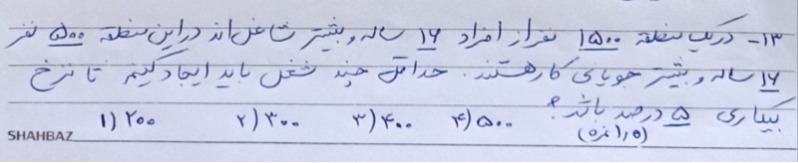 ۱۳- در یک منطقه ۱۵۰۰ نفر از افراد ۱۶ ساله و بیشتر شاغل اند در این منطقه ۵۰۰ نفر
۱۶ ساله و بیشتر جویای کار هستند. حداقل چند شغل باید ایجاد کنیم تا نرخ
بیکاری ۵ درصد باشد؟ ۱) ۲۰۰ ۲) ۳۰۰ ۳) ۴۰۰ ۴) ۵۰۰
SHAHBAZ